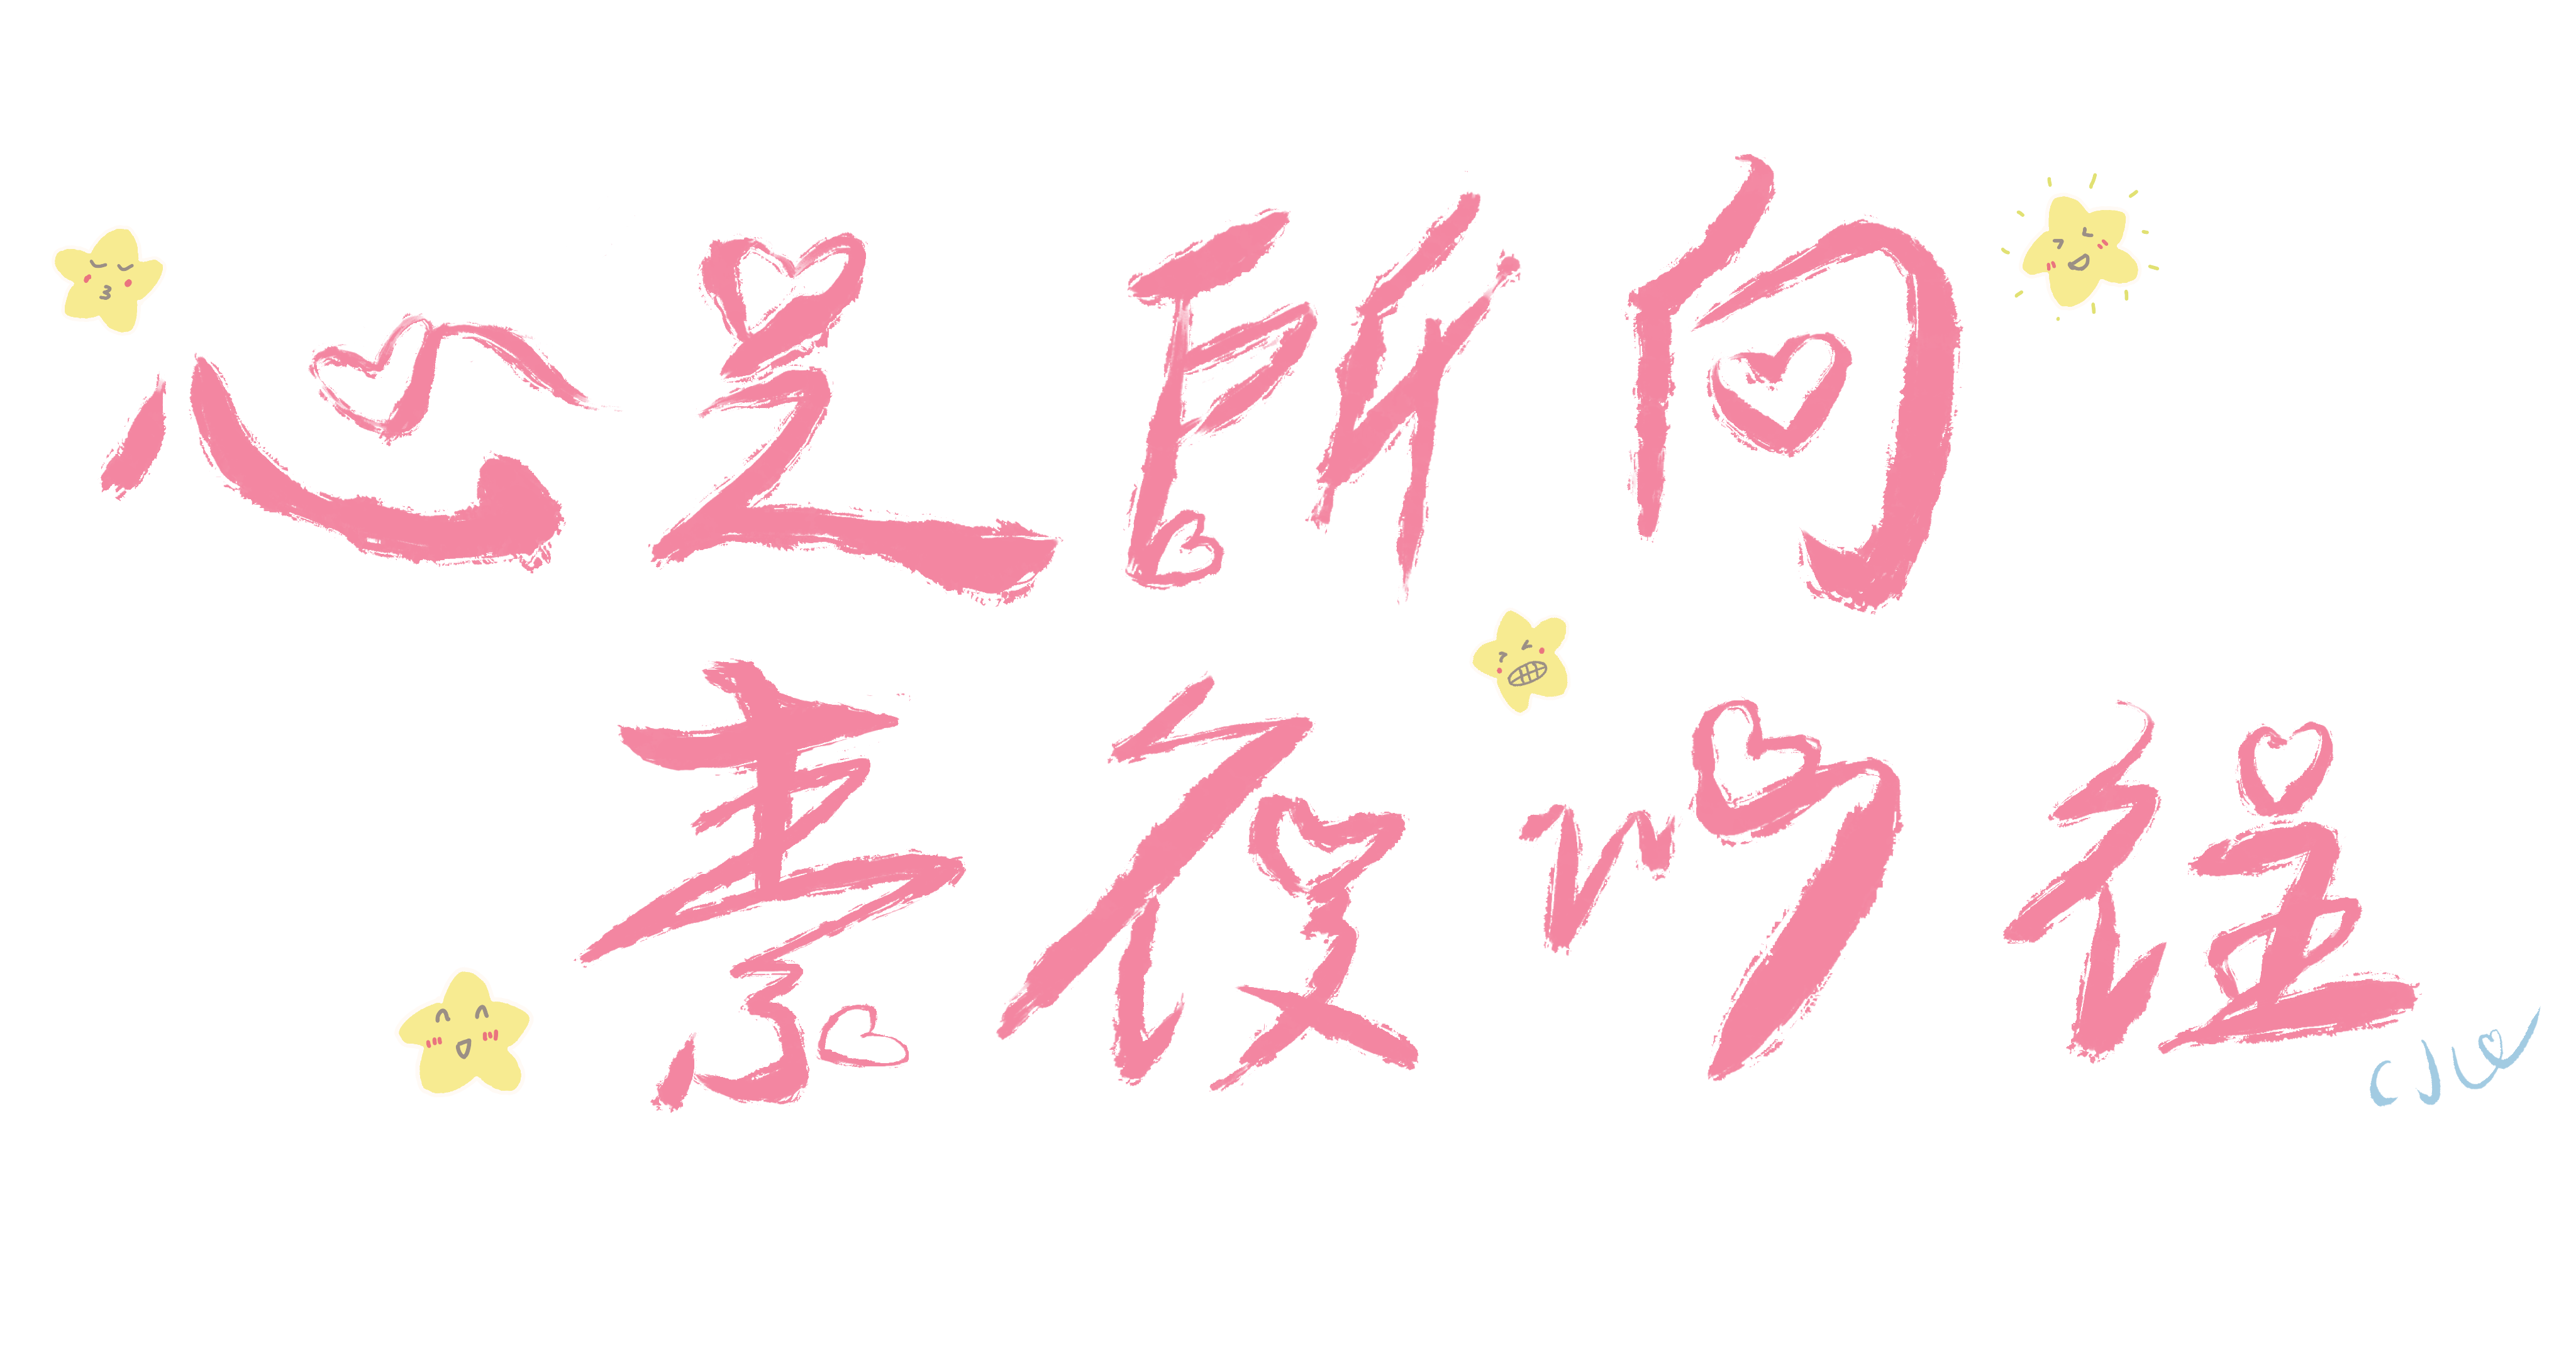 心之所向
素履以往